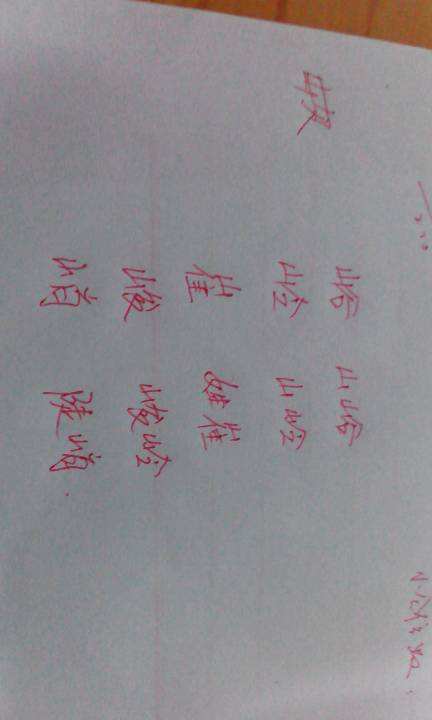 峪 山峪
岭 山岭
崔 姓崔
峻 峻岭
峭 陡峭